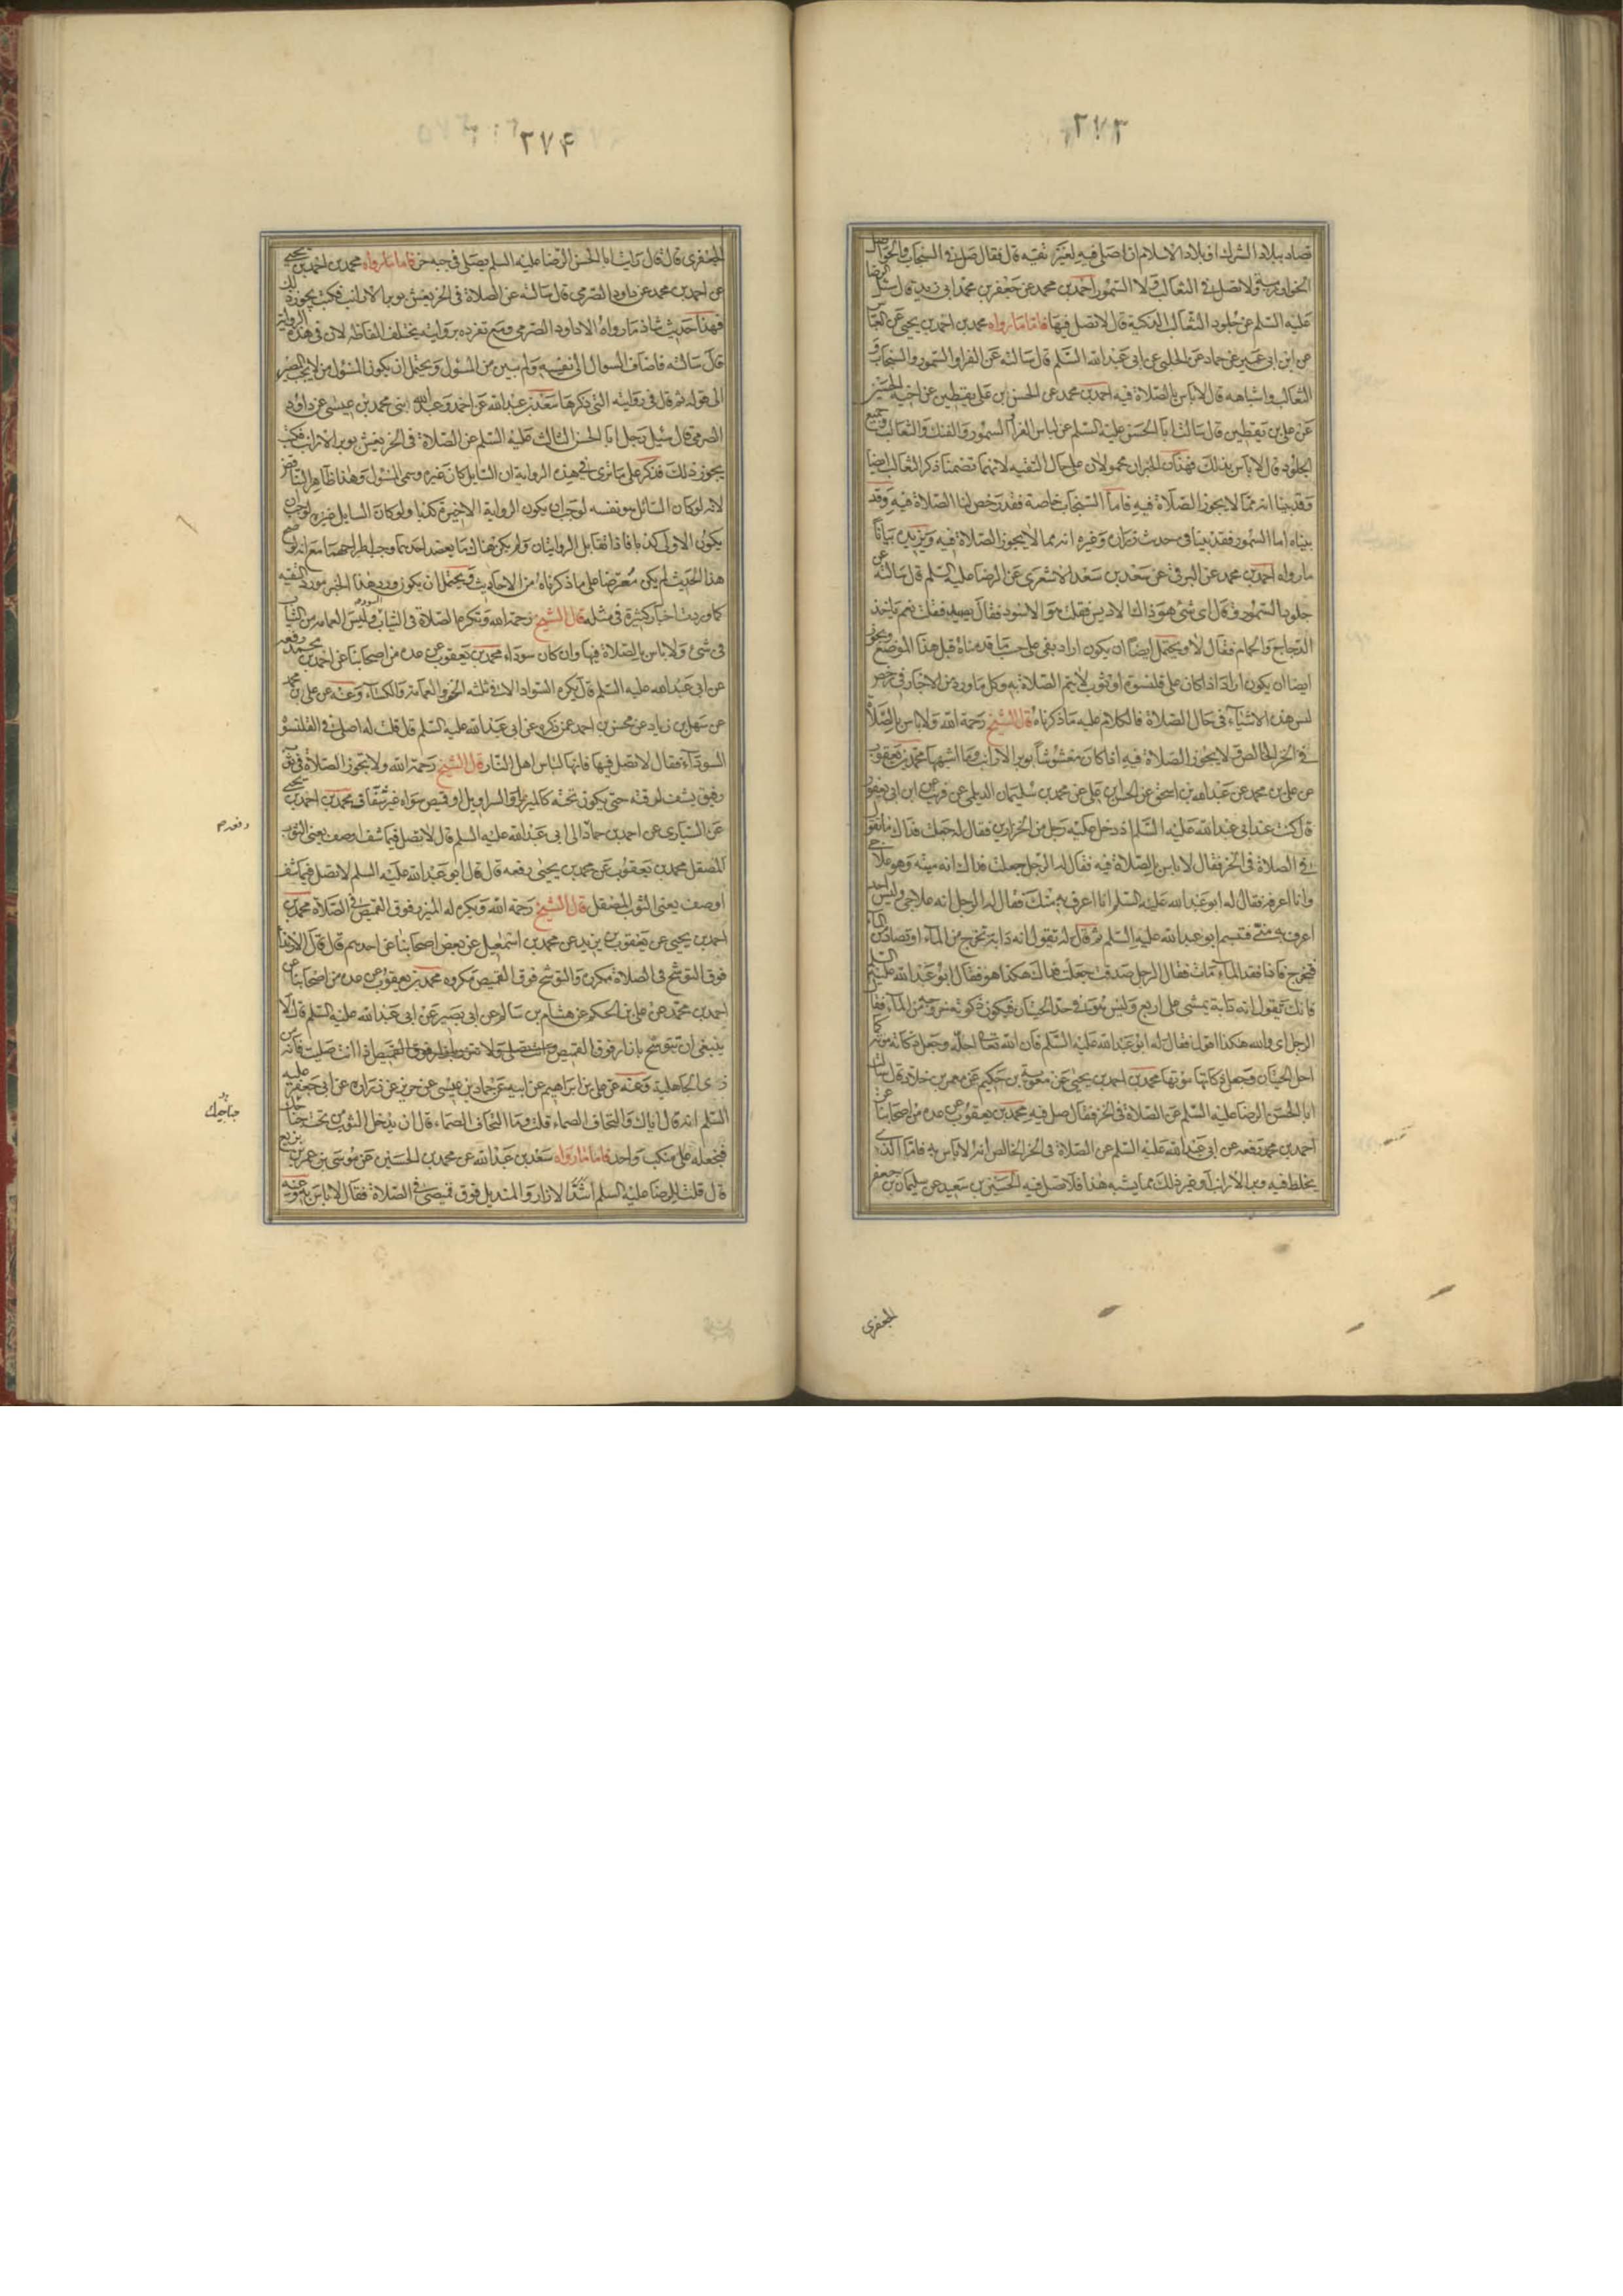 ٢٧٣
تصاد ببلاد الشرك او بلاد الاسلام ان اصلى فيه لغير تقيه قال فقال صل فى السنجاب والحواصل
الخوارزميه ولا تصل فى الثعالب ولا السمور احمد بن محمد عن جعفر بن محمد ابى زيد قال سئل الرضا
عليه السلم عن جلود الثعالب الذكية قال لا تصل فيها فاما ما رواه محمد بن احمد بن يحيى عن العباس
عن ابن ابى عمير عن حماد عن الحلبى عن ابى عبد الله السلم قال سالته عن الفرا والسمور والسنجاب و
الثعالب واشباهه قال لا باس بالصلاة فيه احمد بن محمد عن الحسن بن على بن يقطين عن اخيه الحسين
عن على بن يقطين قال سالت ابا الحسن عليه السلم عن لباس الفراء والسمور والفنك والثعالب وجميع
الجلود قال لا باس بذلك فهذان الخبران محمولان على حال التقيه لانهما تضمنا ذكر الثعالب ايضا
وقد بينا انه مما لا يجوز الصلاة فيه فاما السنجاب خاصة فقد رخص لنا الصلاة فيه وقد
بيناه اما السمور فقد بينا فى حدث زراره وغيره انه مما لا يجوز الصلاة فيه ويزيده بيانا
ما رواه احمد بن محمد عن البرقى عن سعد بن سعد الاشعرى عن الرضا عليه السلم قال سالته عن
جلود السمور فقال اى شى هو ذاك الادبس فقلت هو الاسود فقال يصيد فقلت نعم ياخذ
الدجاج والحمام فقال لا ويحتمل ايضا ان يكون اراد بفى على حسب ما قدمناه قبل هذا الموضع ويجوز
ايضا ان يكون اراد اذا كان على قلنسوة او ثوب لا يتم الصلاة به وكل ما ورد من الاخبار فى رخص
لبس هذه الاشياء فى حال الصلاة فالكلام عليه ما ذكرناه قال الشيخ رحمة الله ولا باس بالصلاة
فى الخز الخالص ولا يجوز الصلاة فيه اذا كان مغشوشا بوبر الارانب وما اشبهها محمد بن يعقوب
عن على بن محمد عن عبد الله بن اسحق عن الحسن بن على عن محمد بن سليمان الديلمى عن قريب عن ابن ابى يعفور
قال كنت عند ابى عبد الله عليه السلم اذ دخل عليه رجل من الخزازين فقال له جعلت فداك ما تقول
فى الصلاة فى الخز فقال لا باس بالصلاة فيه فقال له الرجل جعلت فداك انه ميته وهو علاجى
وانا اعرفه فقال له ابو عبد الله عليه السلم انا اعرف به منك فقال له الرجل انه علاجى وليس احد
اعرف به منى فتبسم ابو عبد الله عليه السلم ثم قال له تقول انه دابة تخرج من الماء او تصاد من الماء
فتخرج فاذا فقد الماء مات فقال الرجل صدقت جعلت فداك هكذا هو فقال ابو عبد الله عليه السلم
فانك تقول انه دابة يمشى على اربع وليس هو فى حد الحيتان فيكون ذكوته خروجه من الماء فقال
الرجل اى والله هكذا اقول فقال له ابو عبد الله عليه السلم فان الله تعالى احله وجعل ذكاته موته كما
احل الحيتان وجعل ذكاتها موتها محمد بن احمد بن يحيى عن معوية بن حكيم عن معمر بن خلاد قال سالت
ابا الحسن الرضا عليه السلم عن الصلاة فى الخز فقال صل فيه محمد بن يعقوب عن عده من اصحابنا عن
احمد بن محمد رفعه عن ابى عبد الله عليه السلم عن الصلاة فى الخز الخالص انه لا باس به فاما الذى
يخلط فيه وبر الارانب او غير ذلك مما يشبه هذا فلا تصل فيه الحسين بن سعيد عن سليمان بن جعفر
الجعفرى
٢٧۴
الجعفرى قال قال رايت ابا الحسن الرضا عليه السلم يصلى فى جبه خز فاما ما رواه محمد بن احمد بن يحيى
عن احمد بن محمد عن داود الصرمى قال سالته عن الصلاة فى الخز يغش بوبر الارانب فكتب يجوز ذلك
فهذا حديث شاذ ما رواه الا داود الصرمى ومع تفرده بروايته يختلف الفاظه لان فى هذه الرواية
قال سالته فاضاف السوال الى نفسه ولم يبين من المسئول ويحتمل ان يكون المسئول من لا يجب المصير
الى قوله ثم قال فى روايته التى ذكرها سعد بن عبد الله عن احمد وعبد الله ابنى محمد بن عيسى عن داود
الصرمى قال سئل رجل ابا الحسن الثالث عليه السلم عن الصلاة فى الخز يغش بوبر الارانب فكتب
يجوز ذلك فذكر على ما ترى فى هذه الرواية ان السايل كان غيره وسمى المسئول وهذا ظاهر التناقض
لانه لو كان السائل هو نفسه لوجب ان يكون الرواية الاخيرة كذبا ولو كان السايل غيره لوجب ان
يكون الاولى كذبا فاذا تقابل الروايتان ولم يكن هناك ما يعضد احديهما وجب اطراحهما مع انه لو صح
هذا الحديث لم يكن معترضا على ما ذكرناه من الاحاديث ويحتمل ان يكون ورود هذا الخبر مورد التقيه
كما وردت اخبار كثيرة فى مثله قال الشيخ رحمة الله وتكره الصلاة فى الثياب السود وليس العمامه من الثياب
فى شى ولا باس بالصلاة فيها وان كان سوداء محمد بن يعقوب عن عده من اصحابنا عن احمد بن محمد رفعه
عن ابى عبد الله عليه السلم قال يكره السواد الا فى ثلثه الخف والعمامة والكساء وعنه عن على بن محمد
عن سهل بن زياد عن محسن بن احمد عمن ذكره عن ابى عبد الله عليه السلم قال قلت له اصلى فى القلنسوة
السوداء فقال لا تصل فيها فانها لباس اهل النار قال الشيخ رحمة الله ولا يجوز الصلاة فى ثوب
رقيق يشف لرقته حتى يكون تحته كالميزر والسراويل او قميص سواه غير شفاف محمد بن احمد بن يحيى
عن السيارى عن احمد بن حماد الى ابى عبد الله عليه السلم قال لا تصل فيما شف او صف يعنى الثوب
رفعه م
المصقل محمد بن يعقوب عن محمد بن يحيى رفعه قال قال ابو عبد الله عليه السلم لا تصل فيما شف
او صف يعنى الثوب المصقل قال الشيخ رحمة الله ويكره له الميزر فوق القميص فى الصلاة محمد بن
احمد بن يحيى عن يعقوب بن يزيد عن محمد بن اسمعيل عن بعض اصحابنا عن احدهم قال قال الارتداء
فوق التوشح فى الصلاة مكروه والتوشح فوق القميص مكروه محمد بن يعقوب عن عده من اصحابنا عن
احمد بن محمد عن على بن الحكم عن هشام بن سالم عن ابى بصير عن ابى عبد الله عليه السلم قال لا
ينبغى ان تتوشح بازار فوق القميص وانت تصلى ولا تتزر بازار فوق القميص اذا انت صليت فانه من
زى الجاهلية وعنه عن على بن ابراهيم عن ابيه عن حماد بن عيسى عن حريز عن زراره عن ابى جعفر عليه
السلم انه قال اياك والتحاف الصماء قلت وما التحاف الصماء قال ان يدخل الثوب من تحت جناحك
جناحيك
فتجعله على منكب واحد فاما ما رواه سعد بن عبد الله عن محمد بن الحسين عن موسى بن عمر بن بزيع
قال قلت للرضا عليه السلم اشد الازار والمنديل فوق قميصى فى الصلاة فقال لا باس به وعنه